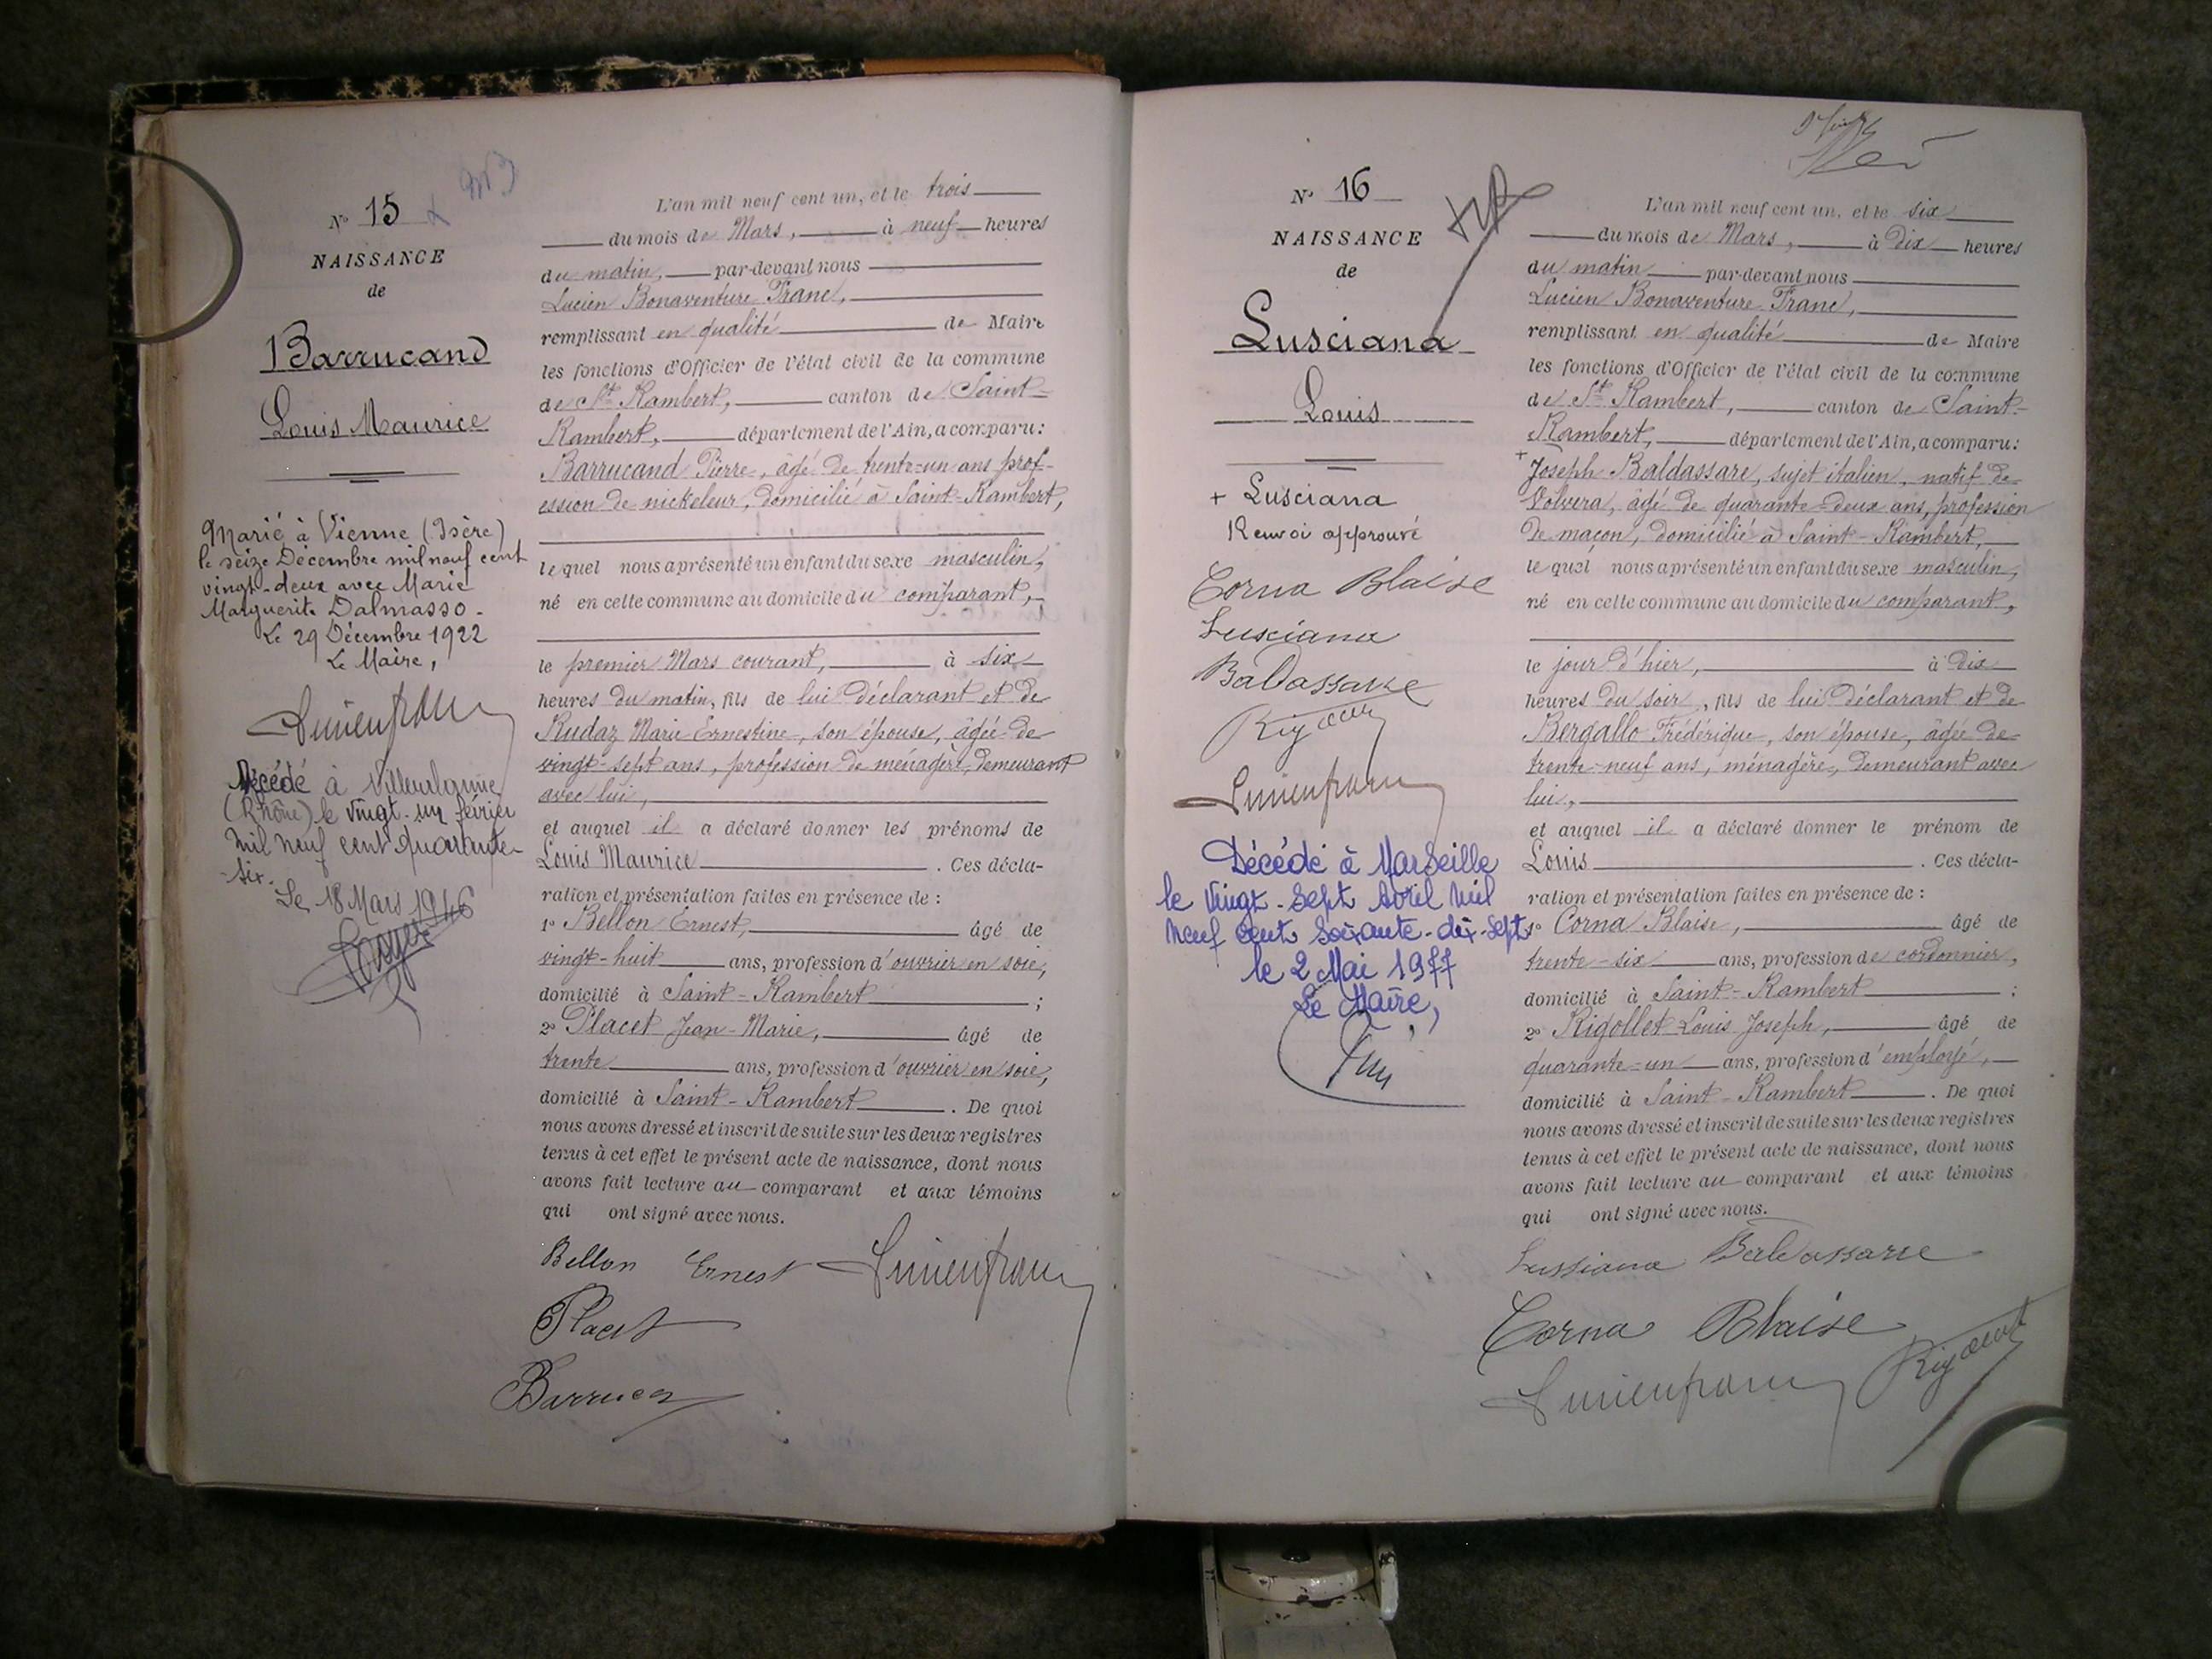 N° 15
NAISSANCE
de
Barrucand
Louis Maurice
Marié à Vienne (Isère)
le seize Décembre mil neuf cent
vingt-deux avec Marie
Marguerite Dalmasso.
Le 29 Décembre 1922
Le Maire,
Lucien franc
Décédé à Villeurbanne
(Rhône) le vingt-un février
mil neuf cent quarante-
-six.
Le 18 Mars 1946
L'an mil neuf cent un, et le trois
du mois de Mars, à neuf heures
du matin, par-devant nous
Lucien Bonaventure Franc,
remplissant en qualité de Maire
les fonctions d'Officier de l'état civil de la commune
de St Rambert, canton de Saint-
Rambert, département de l'Ain, a comparu:
Barrucand Pierre, âgé de trente-un ans prof-
ession de nickeleur, domicilié à Saint-Rambert,
lequel nous a présenté un enfant du sexe masculin,
né en cette commune au domicile du comparant,
le premier Mars courant, à six
heures du matin, fils de lui déclarant et de
Rudaz Marie Ernestine, son épouse, âgée de
vingt-sept ans, profession de ménagère, demeurant
avec lui,
et auquel il a déclaré donner les prénoms de
Louis Maurice. Ces décla-
ration et présentation faites en présence de :
1° Bellon Ernest, âgé de
vingt-huit ans, profession d'ouvrier en soie,
domicilié à Saint-Rambert ;
2° Placet Jean-Marie, âgé de
trente ans, profession d'ouvrier en soie,
domicilié à Saint-Rambert. De quoi
nous avons dressé et inscrit de suite sur les deux registres
tenus à cet effet le présent acte de naissance, dont nous
avons fait lecture au comparant et aux témoins
qui ont signé avec nous.
Bellon Ernest Lucien franc
Placet
Barrucan
N° 16
NAISSANCE
de
Lusciana
Louis
+ Lusciana
Renvoi approuvé
Corna Blaise
Lusciana
Baldassare
Lucien franc
Décédé à Marseille
le vingt-sept Avril mil
neuf cent soixante-dix-sept
le 2 Mai 1977
Le Maire,
L'an mil neuf cent un, et le six
du mois de Mars, à dix heures
du matin par-devant nous
Lucien Bonaventure Franc,
remplissant en qualité de Maire
les fonctions d'Officier de l'état civil de la commune
de St Rambert, canton de Saint-
Rambert, département de l'Ain, a comparu:
+ Joseph Baldassare, sujet italien, natif de
Volvera, âgé de quarante-deux ans, profession
de maçon, domicilié à Saint-Rambert,
lequel nous a présenté un enfant du sexe masculin,
né en cette commune au domicile du comparant,
le jour d'hier, à dix
heures du soir, fils de lui déclarant et de
Bergallo Frédérique, son épouse, âgée de
trente-neuf ans, ménagère, demeurant avec
lui,
et auquel il a déclaré donner le prénom de
Louis. Ces décla-
ration et présentation faites en présence de :
1° Corna Blaise, âgé de
trente-six ans, profession de cordonnier,
domicilié à Saint-Rambert ;
2° Rigollet Louis Joseph, âgé de
quarante-un ans, profession d'employé,
domicilié à Saint-Rambert. De quoi
nous avons dressé et inscrit de suite sur les deux registres
tenus à cet effet le présent acte de naissance, dont nous
avons fait lecture au comparant et aux témoins
qui ont signé avec nous.
Lussiana Baldassare
Corna Blaise
Lucien franc